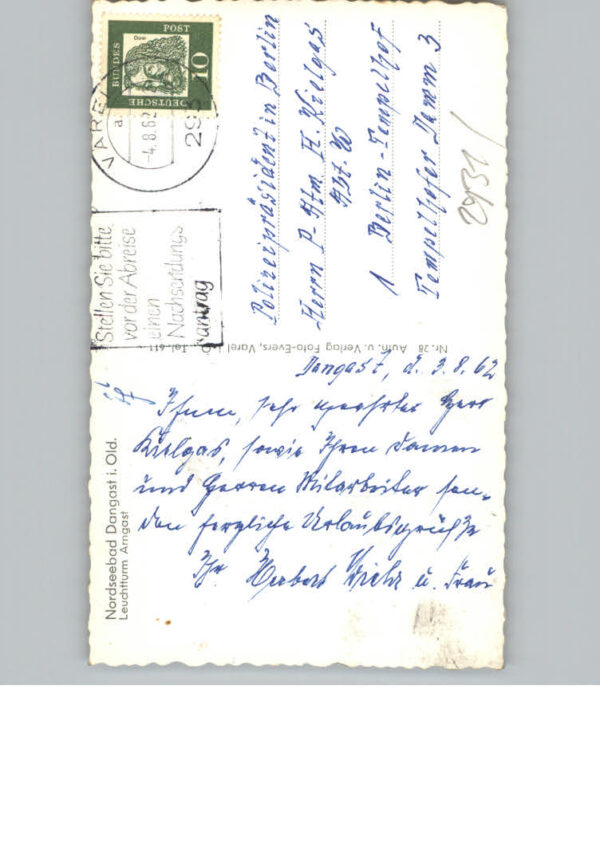 Dangast, d. 3.8.62
Ihnen, sehr geehrter Herr
Kielgas, sowie Ihren Damen
und Herren Mitarbeiter sen-
den herzliche Urlaubsgrüße
Ihr Herbert u. Frau
Polizeipräsident in Berlin
Herrn P-Htm H. Kielgas
Abt. W
1 Berlin-Tempelhof
Tempelhofer Damm 3
2931/
DEUTSCHE
BUNDES
POST
10
VAREL
-4.8.62
293
Stellen Sie bitte
vor der Abreise
einen
Nachsendungs
antrag
Nr. 28 Aufn. u. Verlag Foto-Evers, Varel i. O. Tel. 611
Nordseebad Dangast i. Old.
Leuchtturm Arngast